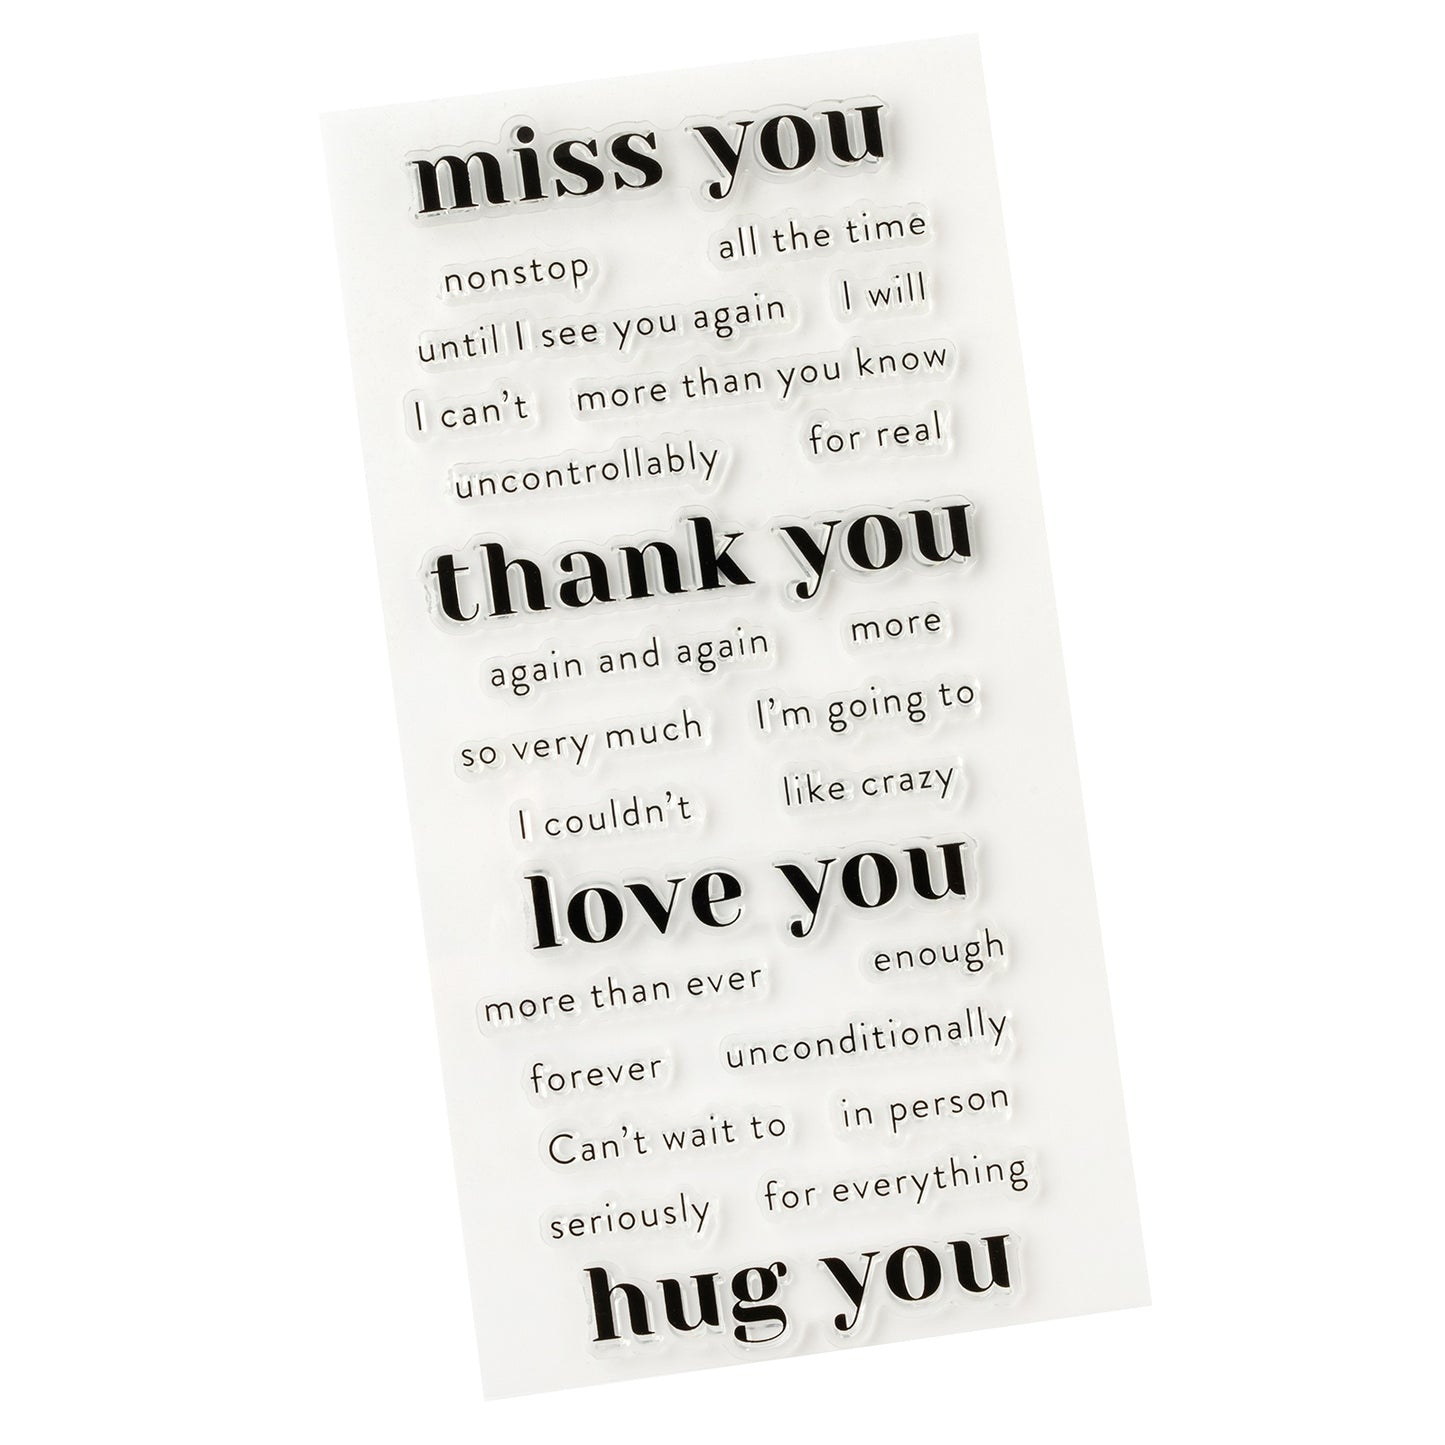 miss you
nonstop all the time
until I see you again I will
I can't more than you know
uncontrollably for real
thank you
again and again more
so very much I'm going to
I couldn't like crazy
love you
more than ever enough
forever unconditionally
Can't wait to in person
seriously for everything
hug you